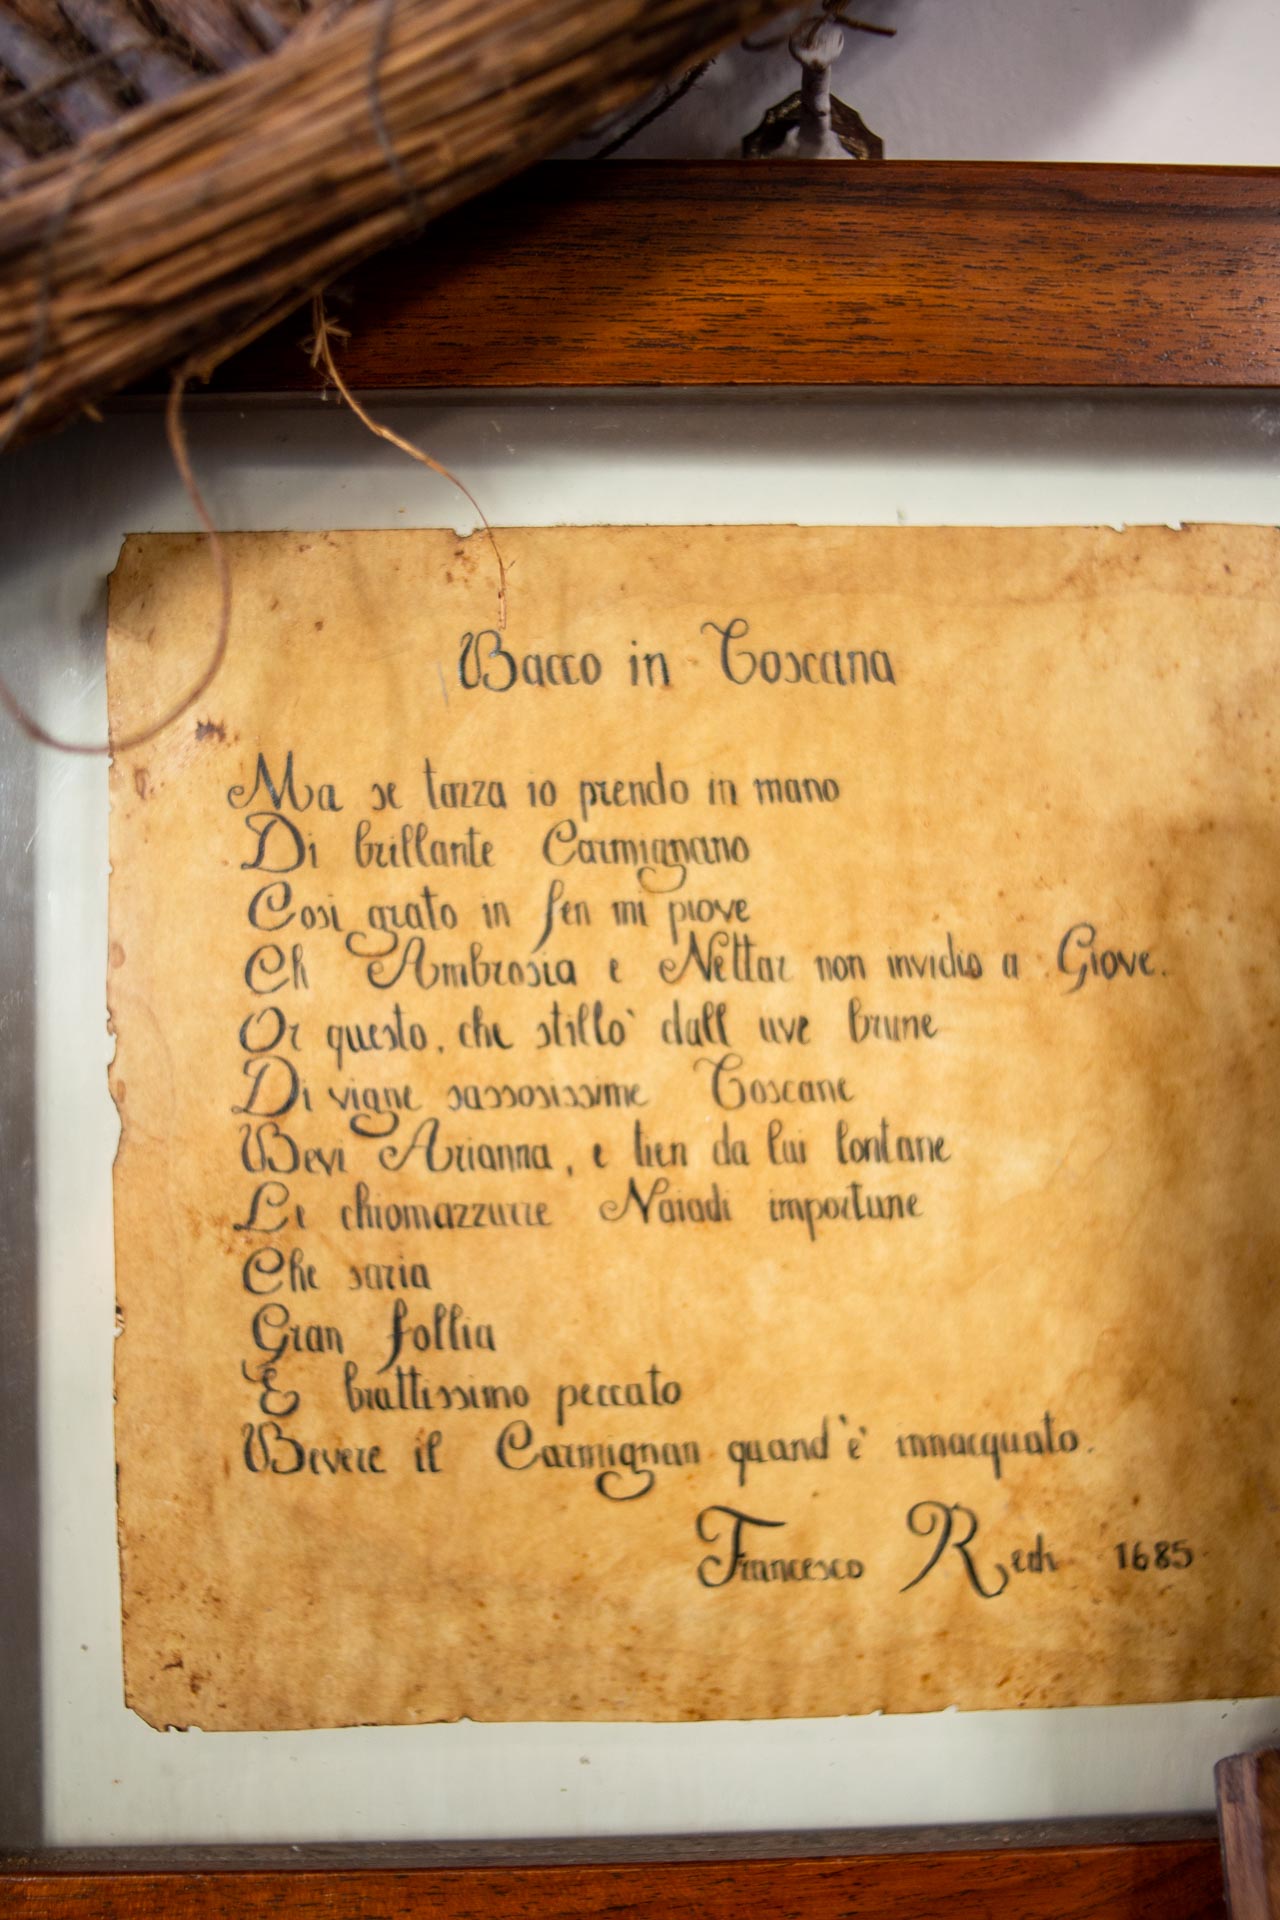 Bacco in Toscana
Ma se tazza io prendo in mano
Di brillante Carmignano
Cosi grato in sen mi piove
Ch Ambrosia e Nettar non invidio a Giove.
Or questo, che stillò dall uve brune
Di vigne sassosissime Toscane
Bevi Arianna, e tien da lui lontane
Le chiomazzurre Naiadi importune
Che saria
Gran follia
E brattissimo peccato
Bevere il Carmignan quand'è innacquato.
Francesco Redi 1685